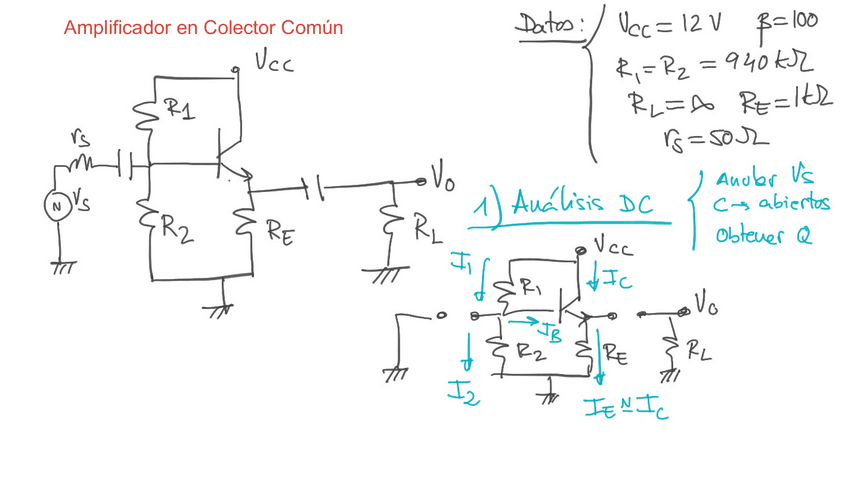 Amplificador en Colector Común
Datos:
VCC = 12 V β = 100
R1 = R2 = 940 kΩ
RL = ∞ RE = 1kΩ
rs = 50 Ω
VCC
R1
rs
Vs
N
R2
RE
Vo
RL
1) Análisis DC
Anular Vs
C → abiertos
Obtener Q
VCC
I1
R1
IC
IB
Vo
R2
RE
RL
I2
IE ≃ IC